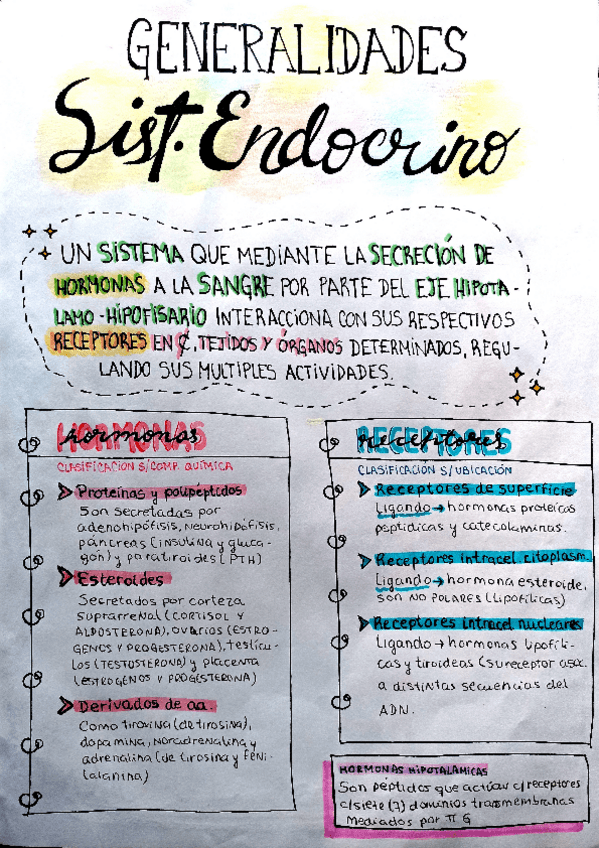 GENERALIDADES
Sist. Endocrino
UN SISTEMA QUE MEDIANTE LA SECRECIÓN DE
HORMONAS A LA SANGRE POR PARTE DEL EJE HIPOTA-
LAMO-HIPOFISARIO INTERACCIONA CON SUS RESPECTIVOS
RECEPTORES EN ₡, TEJIDOS Y ÓRGANOS DETERMINADOS, REGU-
LANDO SUS MULTIPLES ACTIVIDADES.
HORMONAS
CLASIFICACION S/COMP. QUÍMICA
Proteínas y polipéptidos
Son secretadas por
adenohipófisis, neurohipófisis,
páncreas (insulina y gluca-
gón) y paratiroides (PTH)
Esteroides
Secretados por corteza
suprarrenal (CORTISOL Y
ALDOSTERONA), OVARIOS (ESTRO-
GENOS Y PROGESTERONA), testícu-
los (TESTOSTERONA) y placenta
(ESTROGENOS Y PROGESTERONA)
Derivados de aa.
Como tiroxina (de tirosina),
dopamina, noradrenalina y
adrenalina (de tirosina y feni-
lalanina)
RECEPTORES
CLASIFICACIÓN S/UBICACIÓN
Receptores de superficie
Ligando → hormonas proteicas
peptídicas y catecolaminas.
Receptores intracel. citoplasm.
Ligando → hormona esteroide,
son NO POLARES (lipofílicas)
Receptores intracel nucleares
Ligando → hormonas lipofíli-
cas y tiroideas (su receptor asoc.
a distintas secuencias del
ADN.
HORMONAS HIPOTALAMICAS
Son peptidos que actúan c/receptores
c/siete (7) dominios transmembranas
Mediados por π G